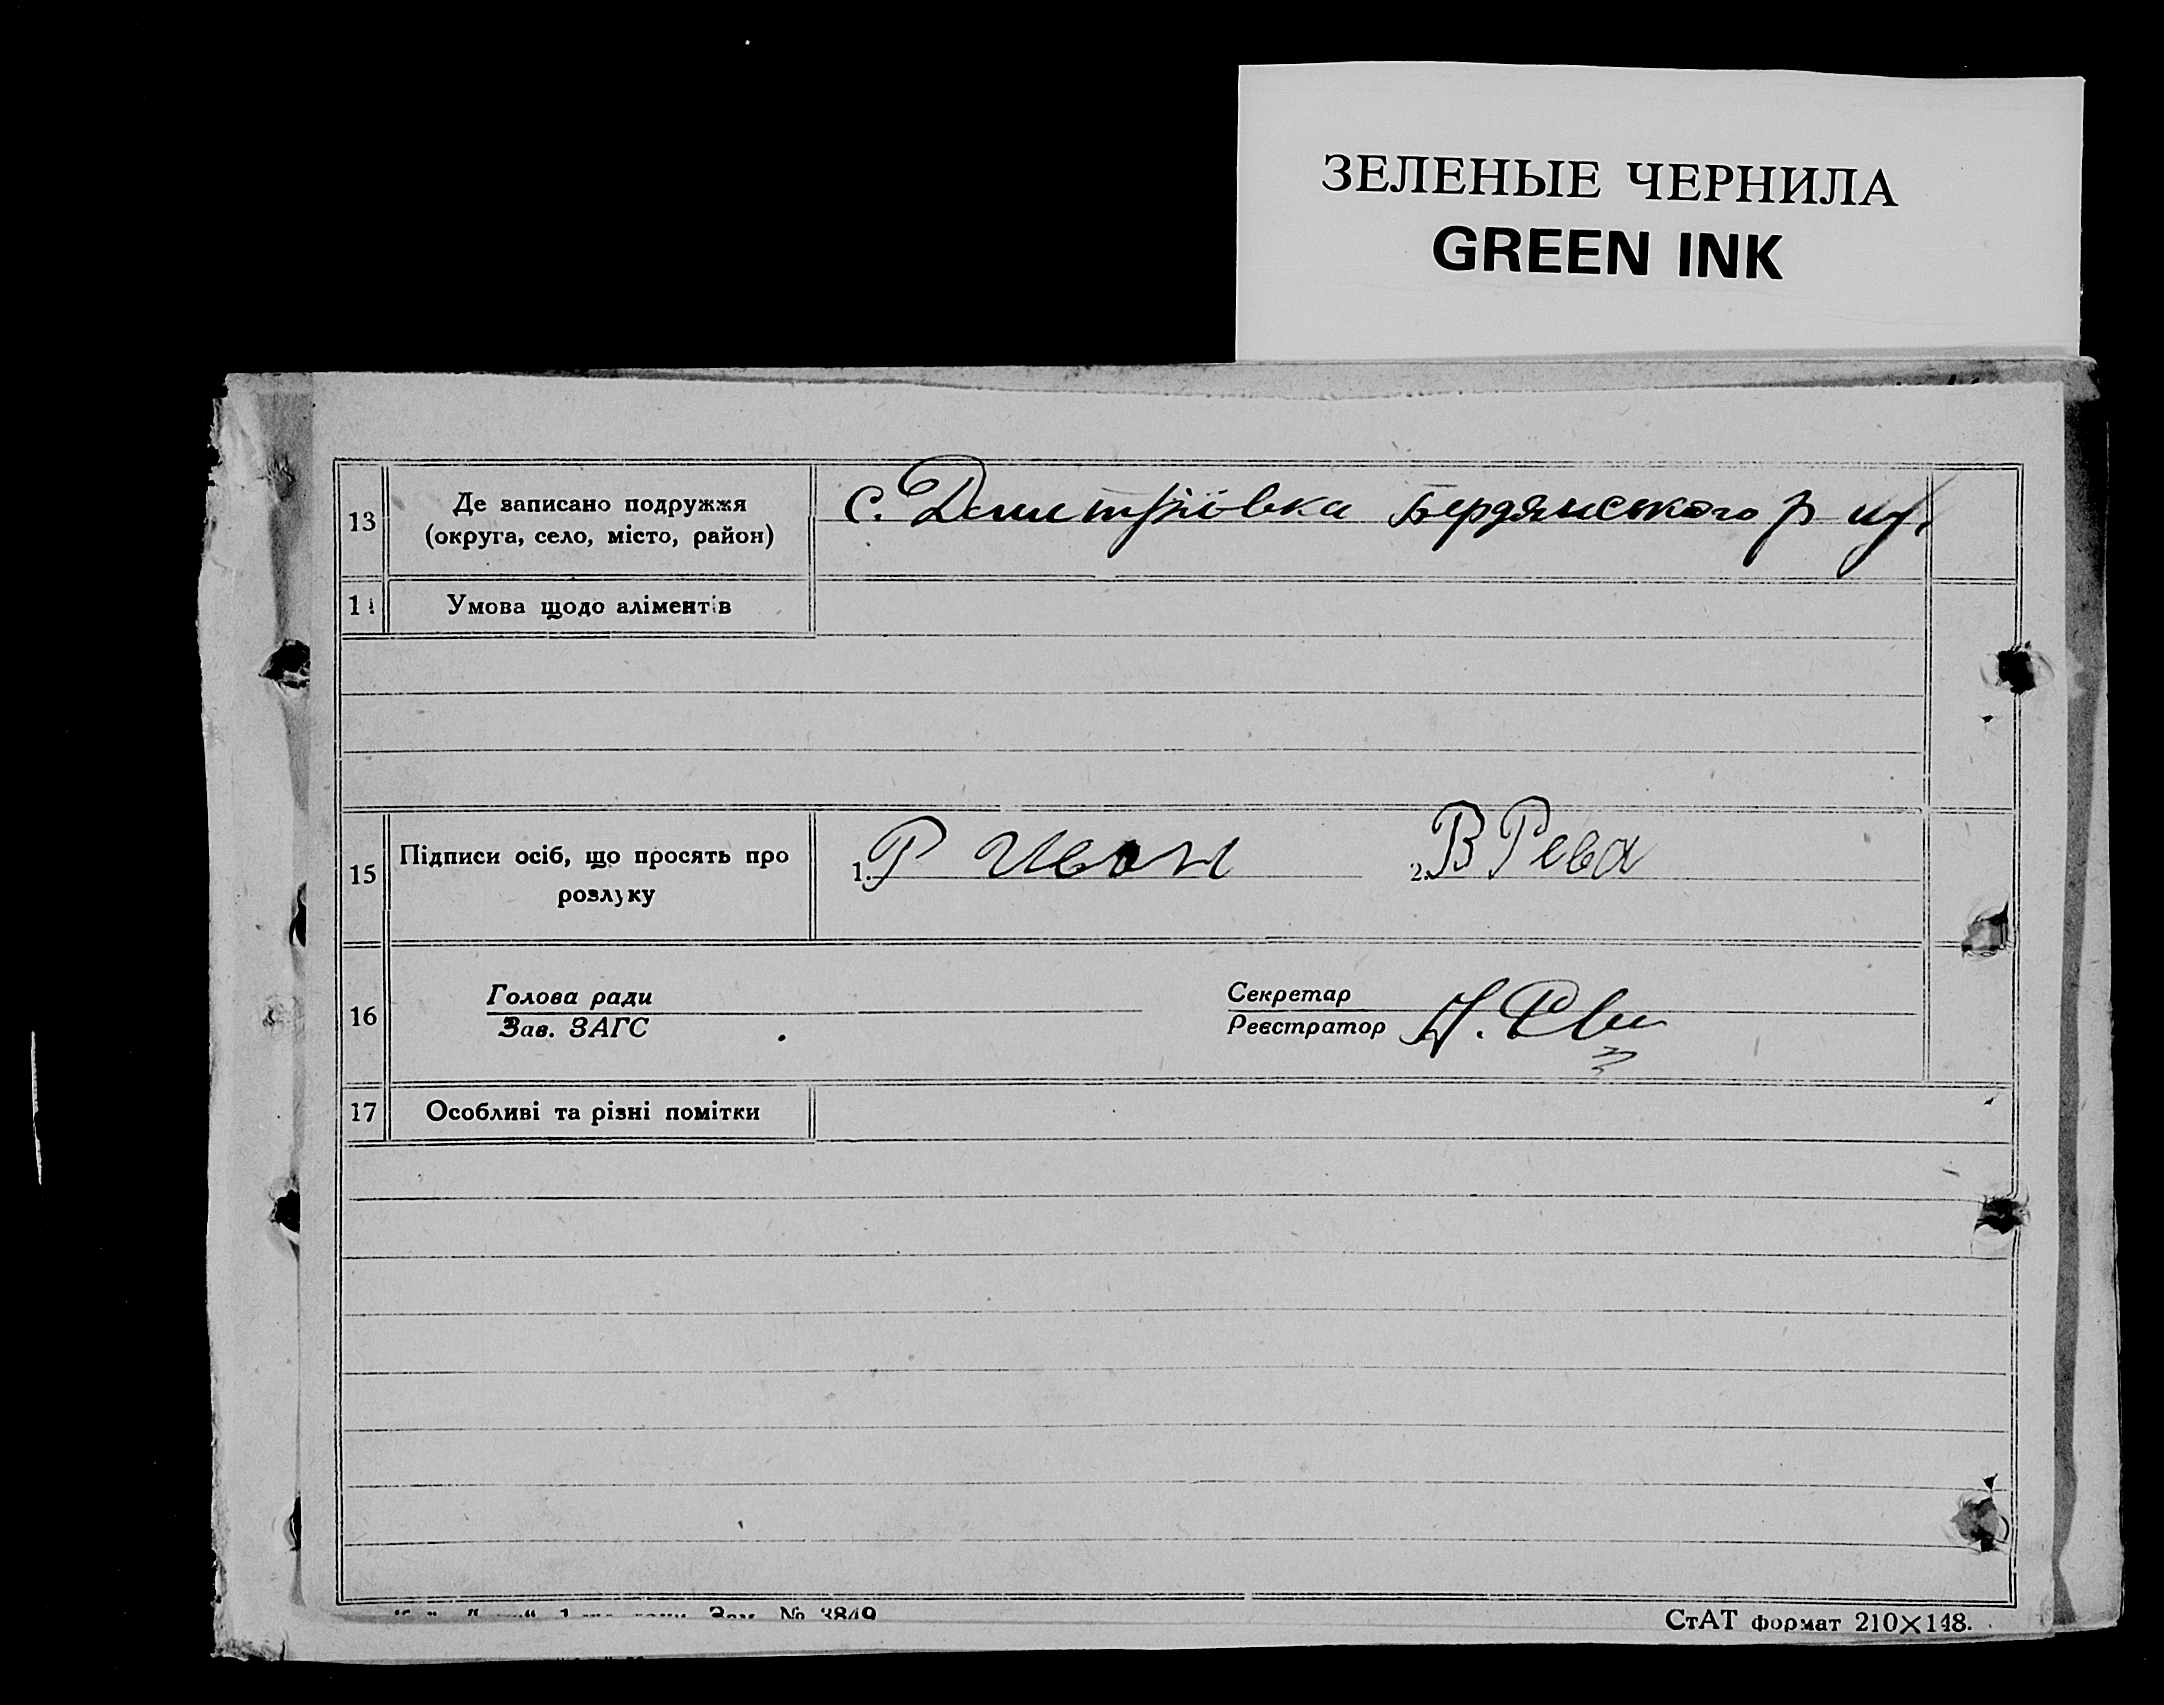 ЗЕЛЕНЫЕ ЧЕРНИЛА
GREEN INK
13 Де записано подружжя (округа, село, місто, район) с. Дмитрівка Бердянського р
14 Умова щодо аліментів
15 Підписи осіб, що просять про розлуку 1. Р Иван 2. В Рева
16 Голова ради Зав. ЗАГС Секретар Реєстратор
17 Особливі та різні помітки
Зам. № 3849
СтАТ формат 210×148.